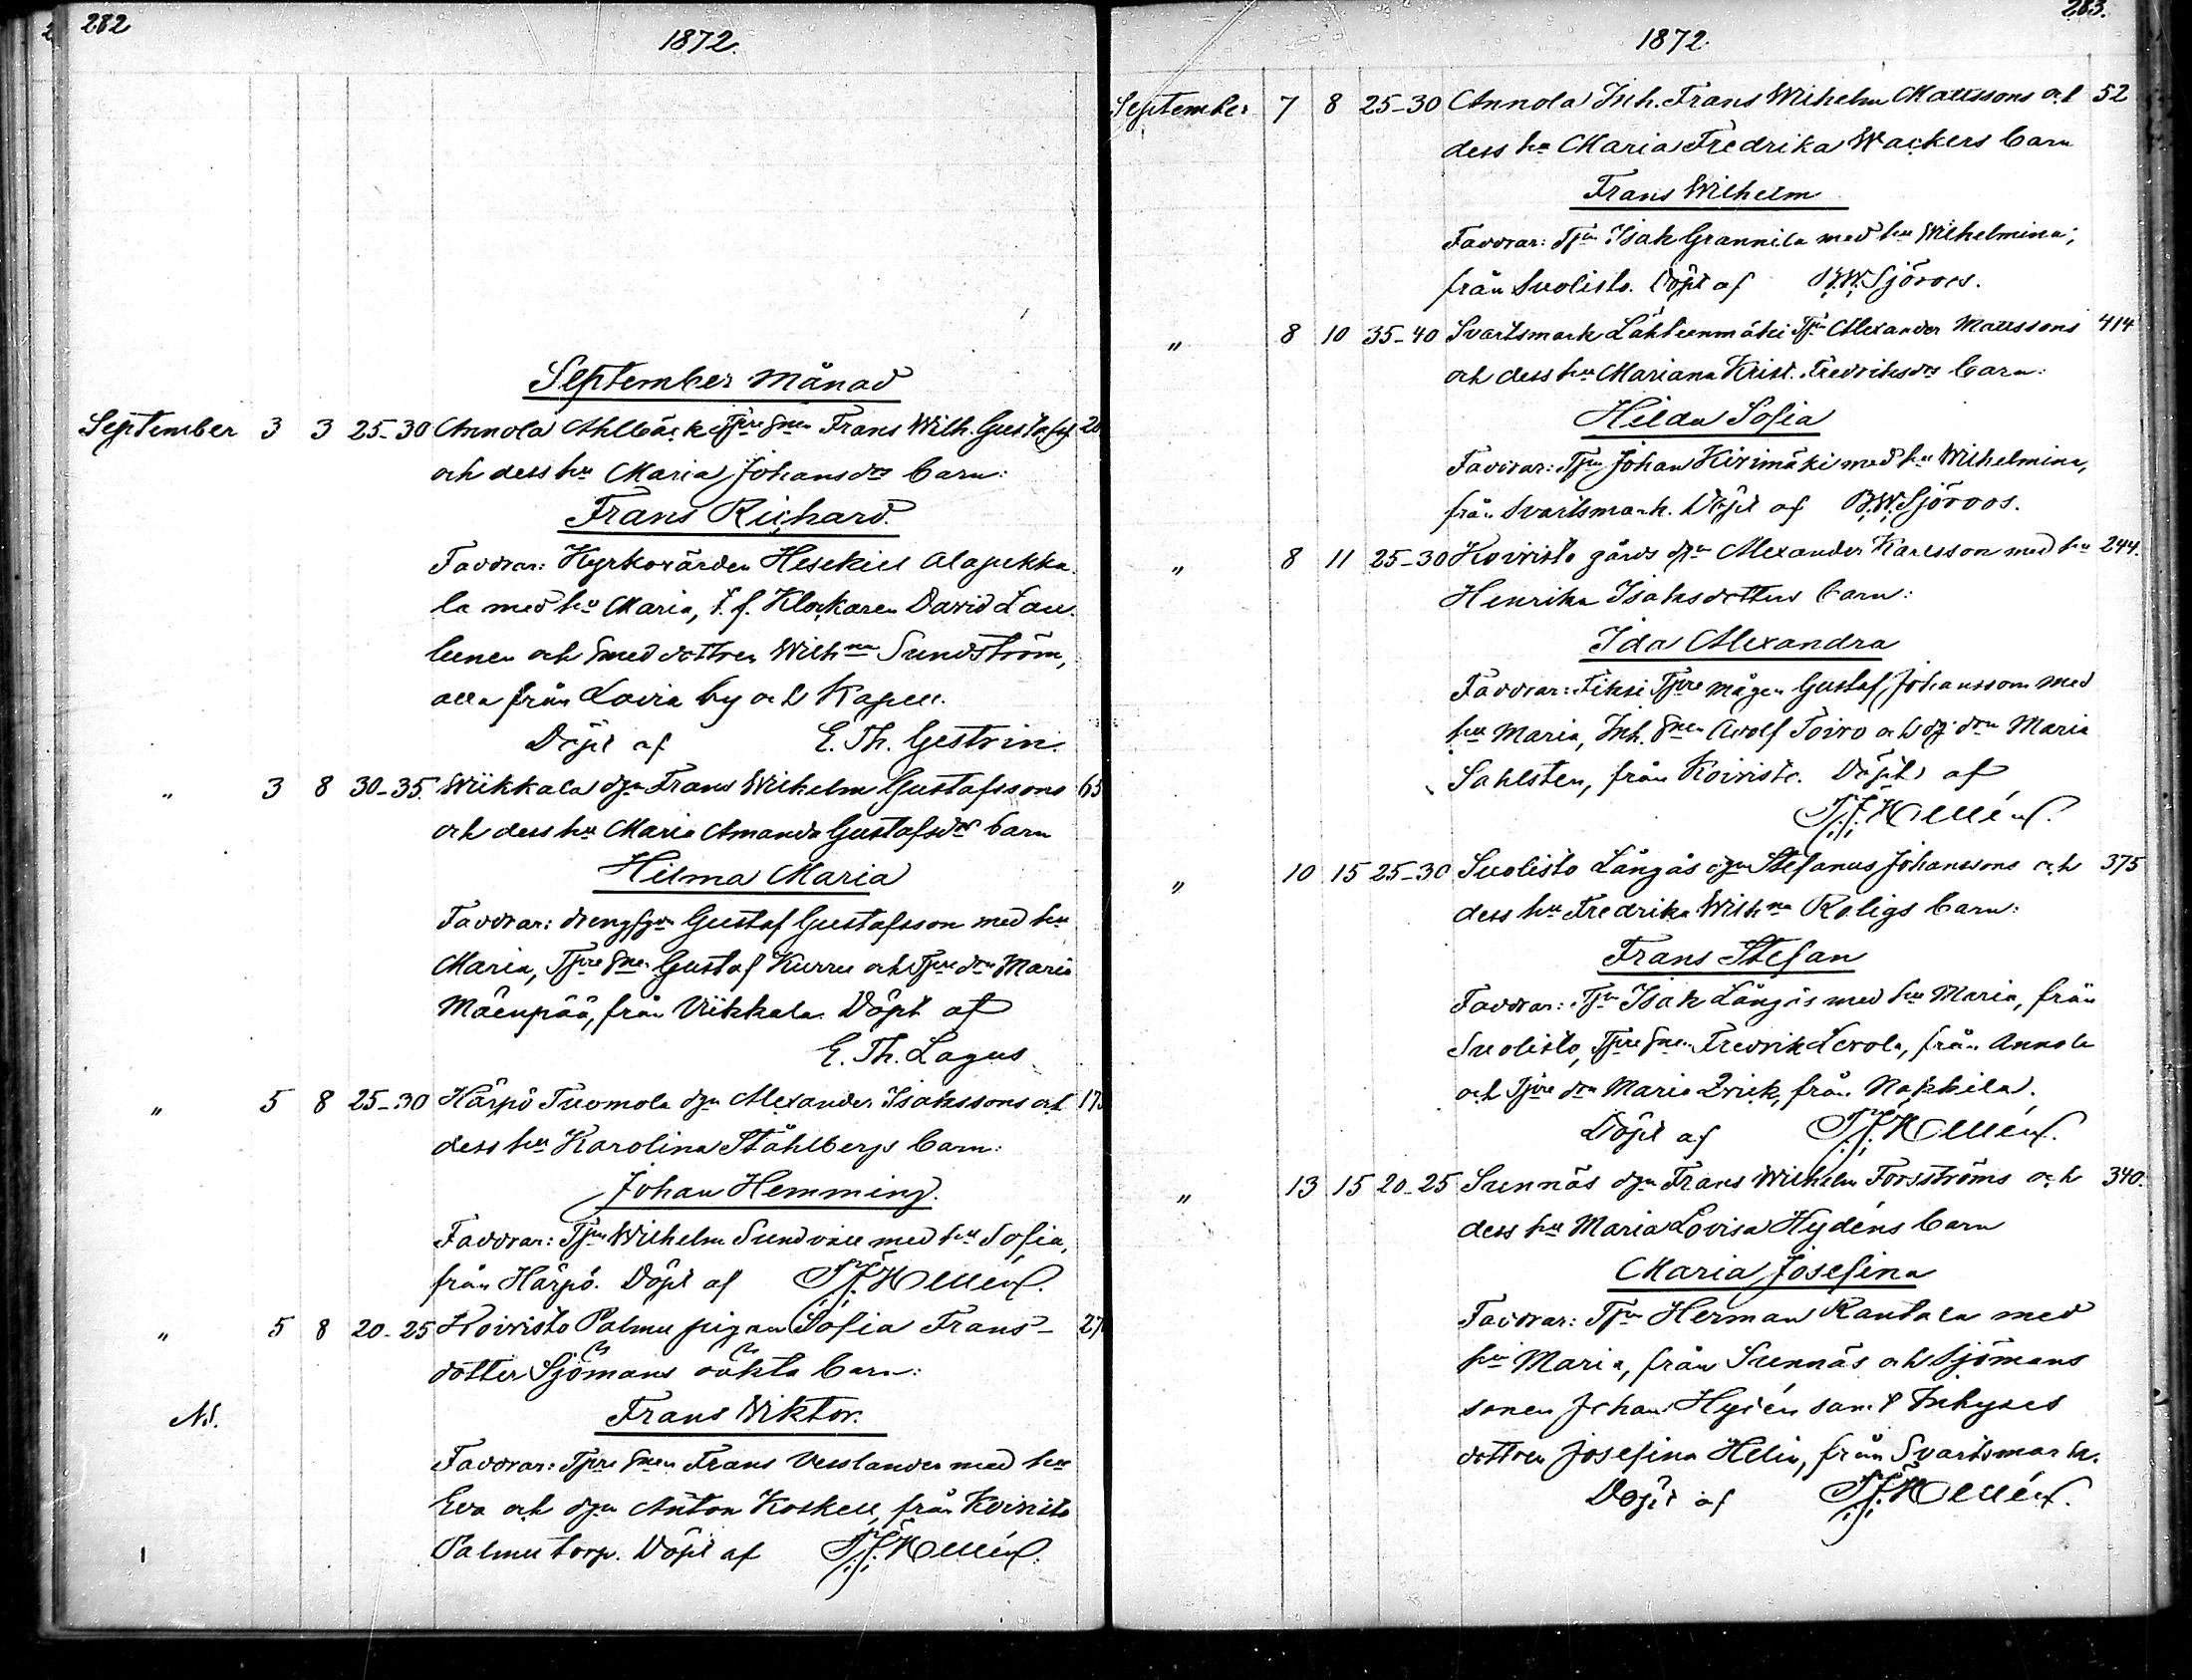 282
1872.
September månad
September 3 3 25-30 Annola Ahlbäck Tjre Snen Frans Wilh. Gustafss 20
och dess hu Maria Johansdrs barn:
Frans Richard.
Faddrar: Kyrkovärden Hesekiel Alapukka-
la med hu Maria, t.f. Klockaren David Lau-
lunen och Smed dottren Wilhna Sundström,
alla från Lavia by och Kapell.
Döpt af E. Th. Gestrin.
" 3 8 30-35. Wiikkala dgn Frans Wilhelm Gustafssons 65
och dess hu Maria Amanda Gustafsdrs barn
Hilma Maria
Faddrar: drengsgn Gustaf Gustafsson med hu
Maria, Tjre Snen Gustaf Kurru och Tjre drn Maria
Mäenpää, från Viikkala. Döpt af
E. Th. Lagus
" 5 8 25-30 Härpö Tuomola dgn Alexander Isakssons och 17
dess hu Karolina Ståhlbergs barn:
Johan Hemming.
Faddrar: Tjn Wilhelm Sundvall med hu Sofia,
från Härpö. Döpt af
" 5 8 20-25 Koivisto Palmu pigan Sofia Frans- 27
dotter Sjömans oäkta barn:
Nd. Frans Wiktor.
Faddrar: Tjre Snen Frans Vesslander med hu
Eva och dgn Anton Koskell, från Koivisto
Palmu torp. Döpt af
1
283.
1872.
September 7 8 25-30 Annola Inh. Frans Wilhelm Mattssons och 52
dess hu Maria Fredrika Wackers barn
Frans Wilhelm
Faddrar: Tjn Isak Grannila med hu Wilhelmina;
från Suolisto. Döpt af B.W. Sjöroos.
" 8 10 35-40 Svartsmark Lähteenmäki Tjn Alexander Mattssons 414
och dess hu Mariana Krist. Fredriksdrs barn:
Hilda Sofia
Faddrar: Tjn Johan Kivimäki med hu Wilhelmina,
från Svartsmark. Döpt af B.W. Sjöroos.
" 8 11 25-30 Koivisto gårds dgn Alexander Karlsson med hu 244.
Henrika Isaksdotters barn:
Ida Alexandra
Faddrar: Fiksi Tjre mågen Gustaf Johansson med
hu Maria, Inh. Snen Adolf Toivo och dg drn Maria
Sahlsten, från Koivisto. Döpt af
" 10 15 25-30 Suolisto Långås dgn Stefanus Johanssons och 375
dess hu Fredrika Wilhna Roligs barn:
Frans Stefan
Faddrar: Tjn Isak Långås med hu Maria, från
Suolisto, Tjre Snen Fredrik Levola, från Annola
och Tjre drn Maria Qvick, från Nakkila.
Döpt af
" 13 15 20-25 Sunnäs dgn Frans Wilhelm Forsströms och 340.
dess hu Maria Lovisa Hydéns barn
Maria Josefina
Faddrar: Tjn Herman Rantala med
hu Maria, från Sunnäs och Sjömans
sonen Johan Hydén samt Inhyses
dottren Josefina Helin, från Svartsmark.
Döpt af